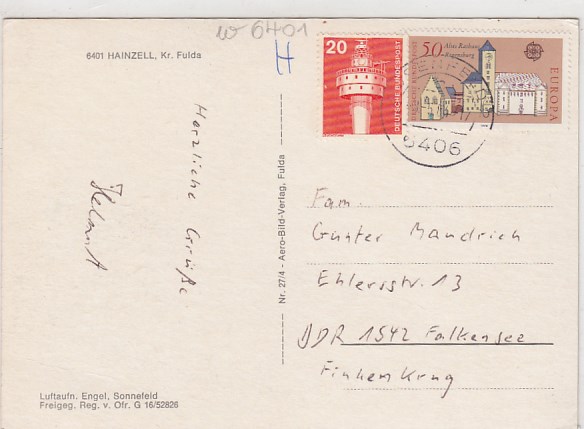 w 6401
H
6401 HAINZELL, Kr. Fulda
20
DEUTSCHE BUNDESPOST
50
Altes Rathaus
Regensburg
EUROPA
6406
Herzliche Grüße
Nr. 27/4 - Aero-Bild-Verlag, Fulda
Fam.
Günter Mandrich
Ehlersstr. 13
DDR 1542 Falkensee
Finkenkrug
Luftaufn. Engel, Sonnefeld
Freigeg. Reg. v. Ofr. G 16/52826